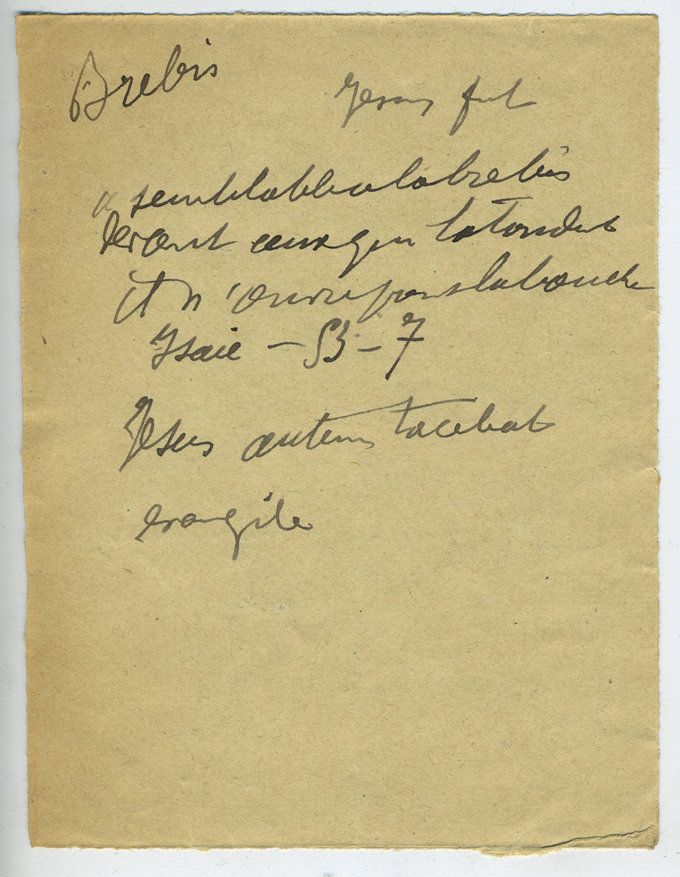 Brebis
Jesus fut
semblable a la brebis
devant ceux qui la tondent
et n'ouvre pas la bouche
Isaie - 53 - 7
Jesus autem tacebat
evangile